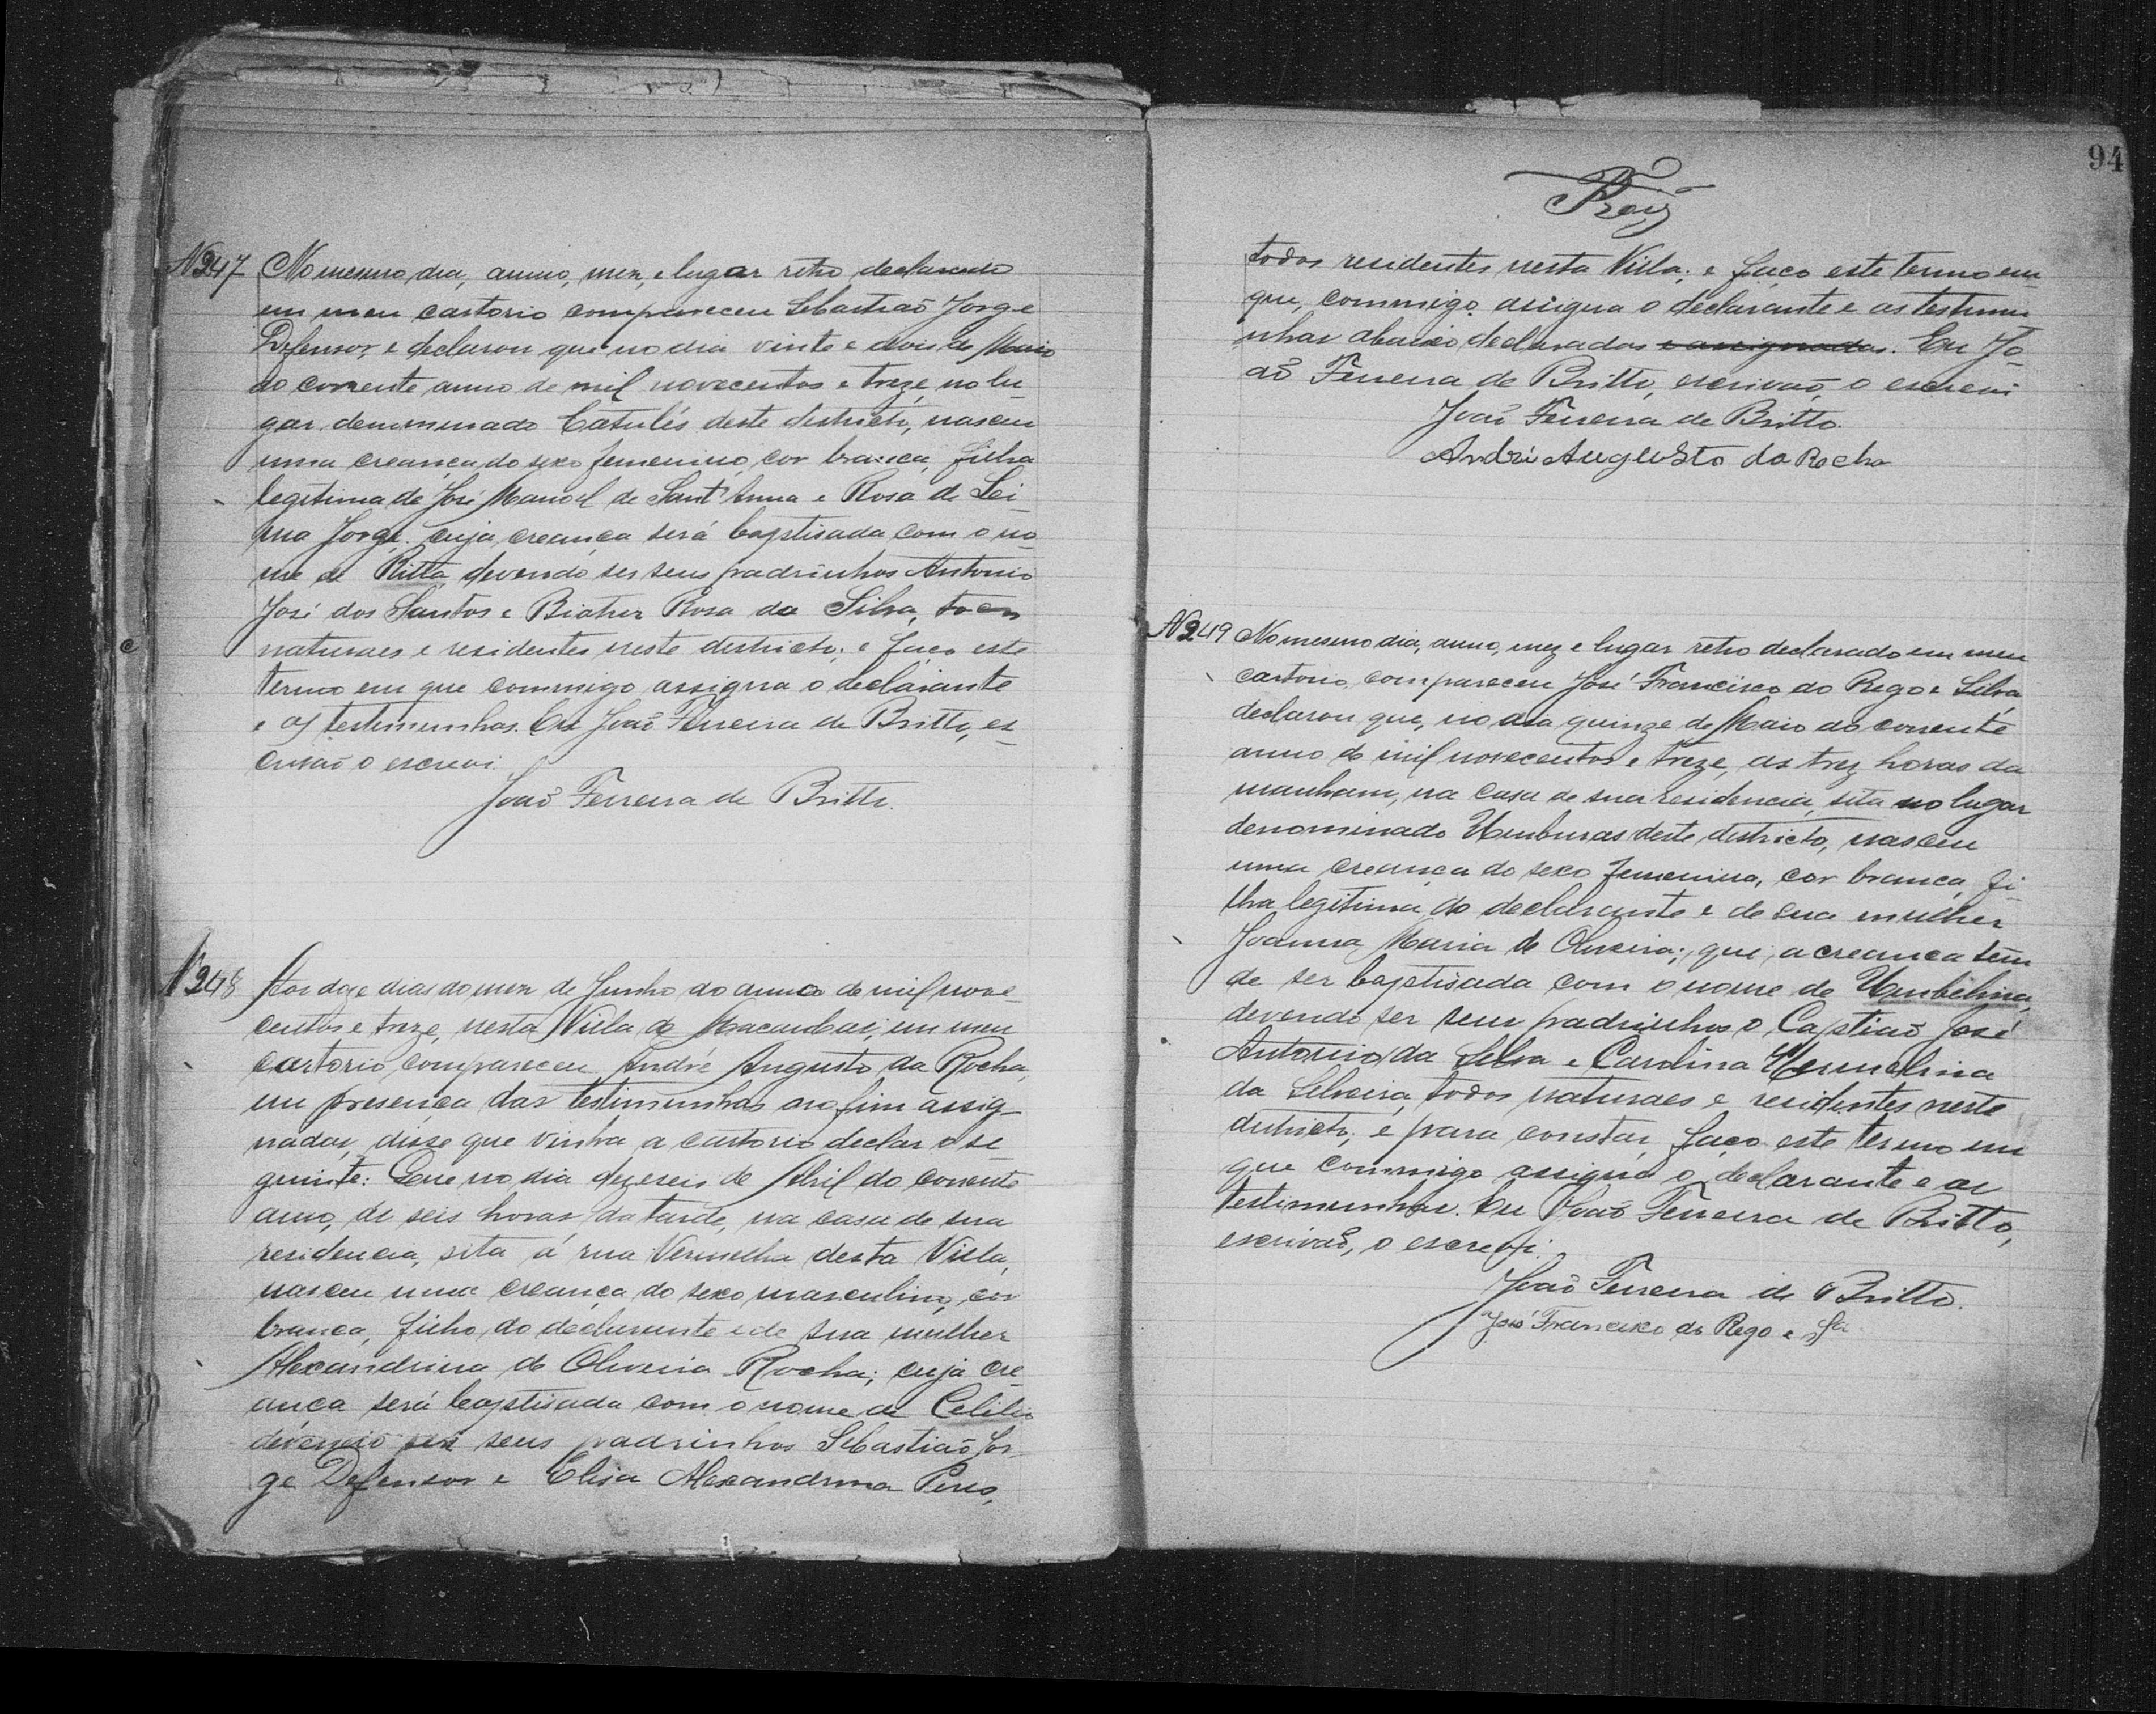 N 247 No mesmo dia, anno, mez, e lugar retro declarado
em meu cartorio compareceu Sebastião Jorge
Defensor, e declarou que no dia vinte e dois de Maio
do corrente anno de mil novecentos e treze, no lu-
gar denominado Catulés deste districto, nasceu
uma creança do sexo femenino, cor branca, filha
legitima de José Manoel de Sant'Anna e Rosa de
Jorge. cuja creança será baptisada com o no-
me de Ritta, devendo ser seus padrinhos Antonio
José dos Santos e Biatriz Rosa da Silva, todos
naturaes e residentes neste destricto; e faço este
termo em que commigo assigna o declarante
e as testimunhas. Eu João Ferreira de Britto, es-
crivão o escrevi.
João Ferreira de Britto.
N 248 Aos doze dias do mez de Junho do anno de mil nove-
centos e treze, nesta Villa de Macaubas, em meu
cartorio, compareceu André Augusto da Rocha,
em presença das testimunhas ao fim assig-
nadas, disse que vinha a cartorio declar o se
guinte: Que no dia dezeseis de Abril do corrente
anno, às seis horas da tarde, na casa de sua
residencia, sita á rua Vermelha desta Villa,
nasceu uma creança do sexo masculino, cor
branca, filho do declarante e de sua mulher
Alexandrina de Oliveira Rocha; cuja cre-
ança será baptisada com o nome de
devendo ser seus padrinhos Sebastião Jor-
ge Defensor e Elisa Alexandrina Pires,
94
todos residentes nesta Villa; e faço este termo em
que, commigo assigna o declarante e as testimu
nhas abaixo declaradas e assignadas. Eu Jo-
ão Ferreira de Britto, escrivão, o escrevi
João Ferreira de Britto.
André Augusto da Rocha
N 249 No mesmo dia, anno, mez e lugar retro declarado em meu
cartorio, compareceu José Francisco do Rego e Silva,
declarou que, no dia quinze de Maio do corrente
anno de mil novecentos e treze, as trez horas da
manham, na casa de sua residencia, sita no lugar
denominado Umburas deste districto, nasceu
uma creança do sexo femenina, cor branca, fi-
lha legitima do declarante e de sua mulher
Joanna Maria de Oliveira; que, a creanca tem
de ser baptisada com o nome de Umbelina,
devendo ser seus padrinhos o Capitião José
Antonio da Silva e Carolina
da Silveira, todos naturaes e residentes neste
districto; e para constar, faço este termo em
que commigo assigna o declarante e as
testimunhas. Eu João Ferreira de Britto,
escrivão, o escrevi.
João Ferreira de Britto.
José Francisco do Rego e Sa